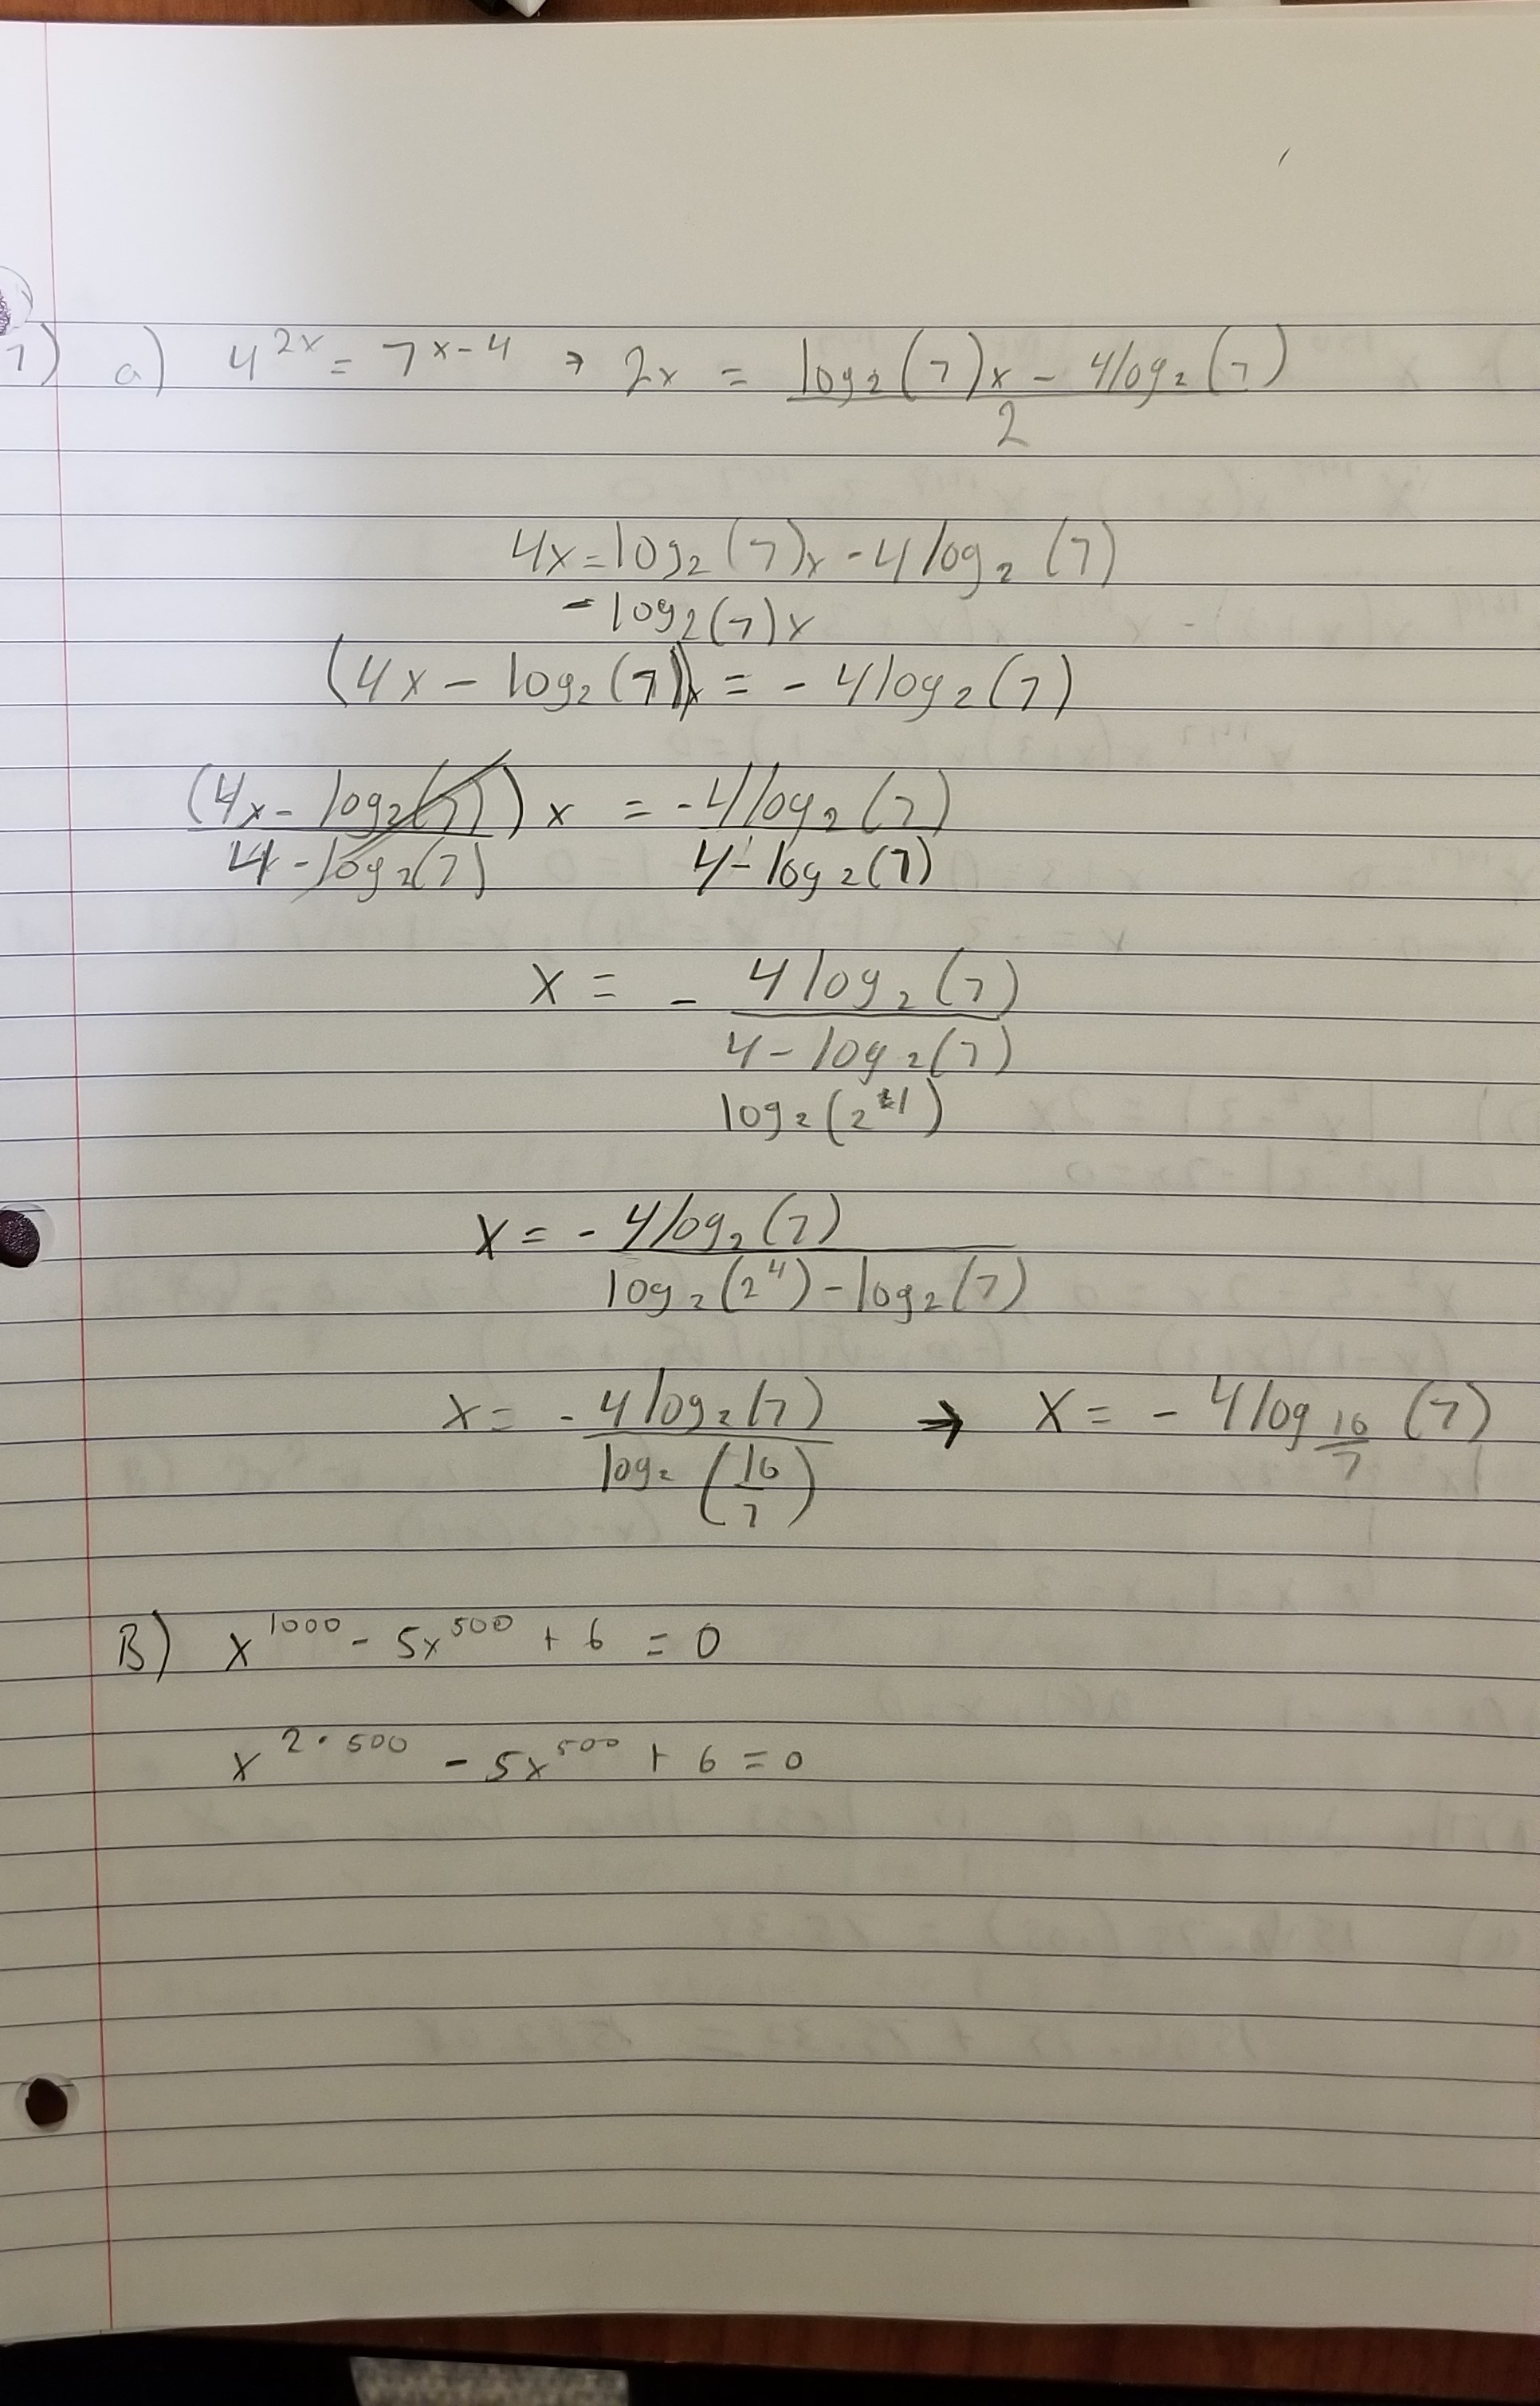 7) a) 4^{2x} = 7^{x-4} → 2x = \frac{log₂(7)x - 4log₂(7)}{2}
4x = log₂(7)x - 4log₂(7)
- log₂(7)x
(4x - log₂(7))x = - 4log₂(7)
\frac{(4x - log₂(7))}{4 - log₂(7)} x = \frac{-4log₂(7)}{4 - log₂(7)}
x = - \frac{4log₂(7)}{4 - log₂(7)}
log₂(2^4)
x = - \frac{4log₂(7)}{log₂(2^4) - log₂(7)}
x = - \frac{4log₂(7)}{log₂(\frac{16}{7})} → x = - 4log_{\frac{16}{7}}(7)
B) x^{1000} - 5x^{500} + 6 = 0
x^{2·500} - 5x^{500} + 6 = 0